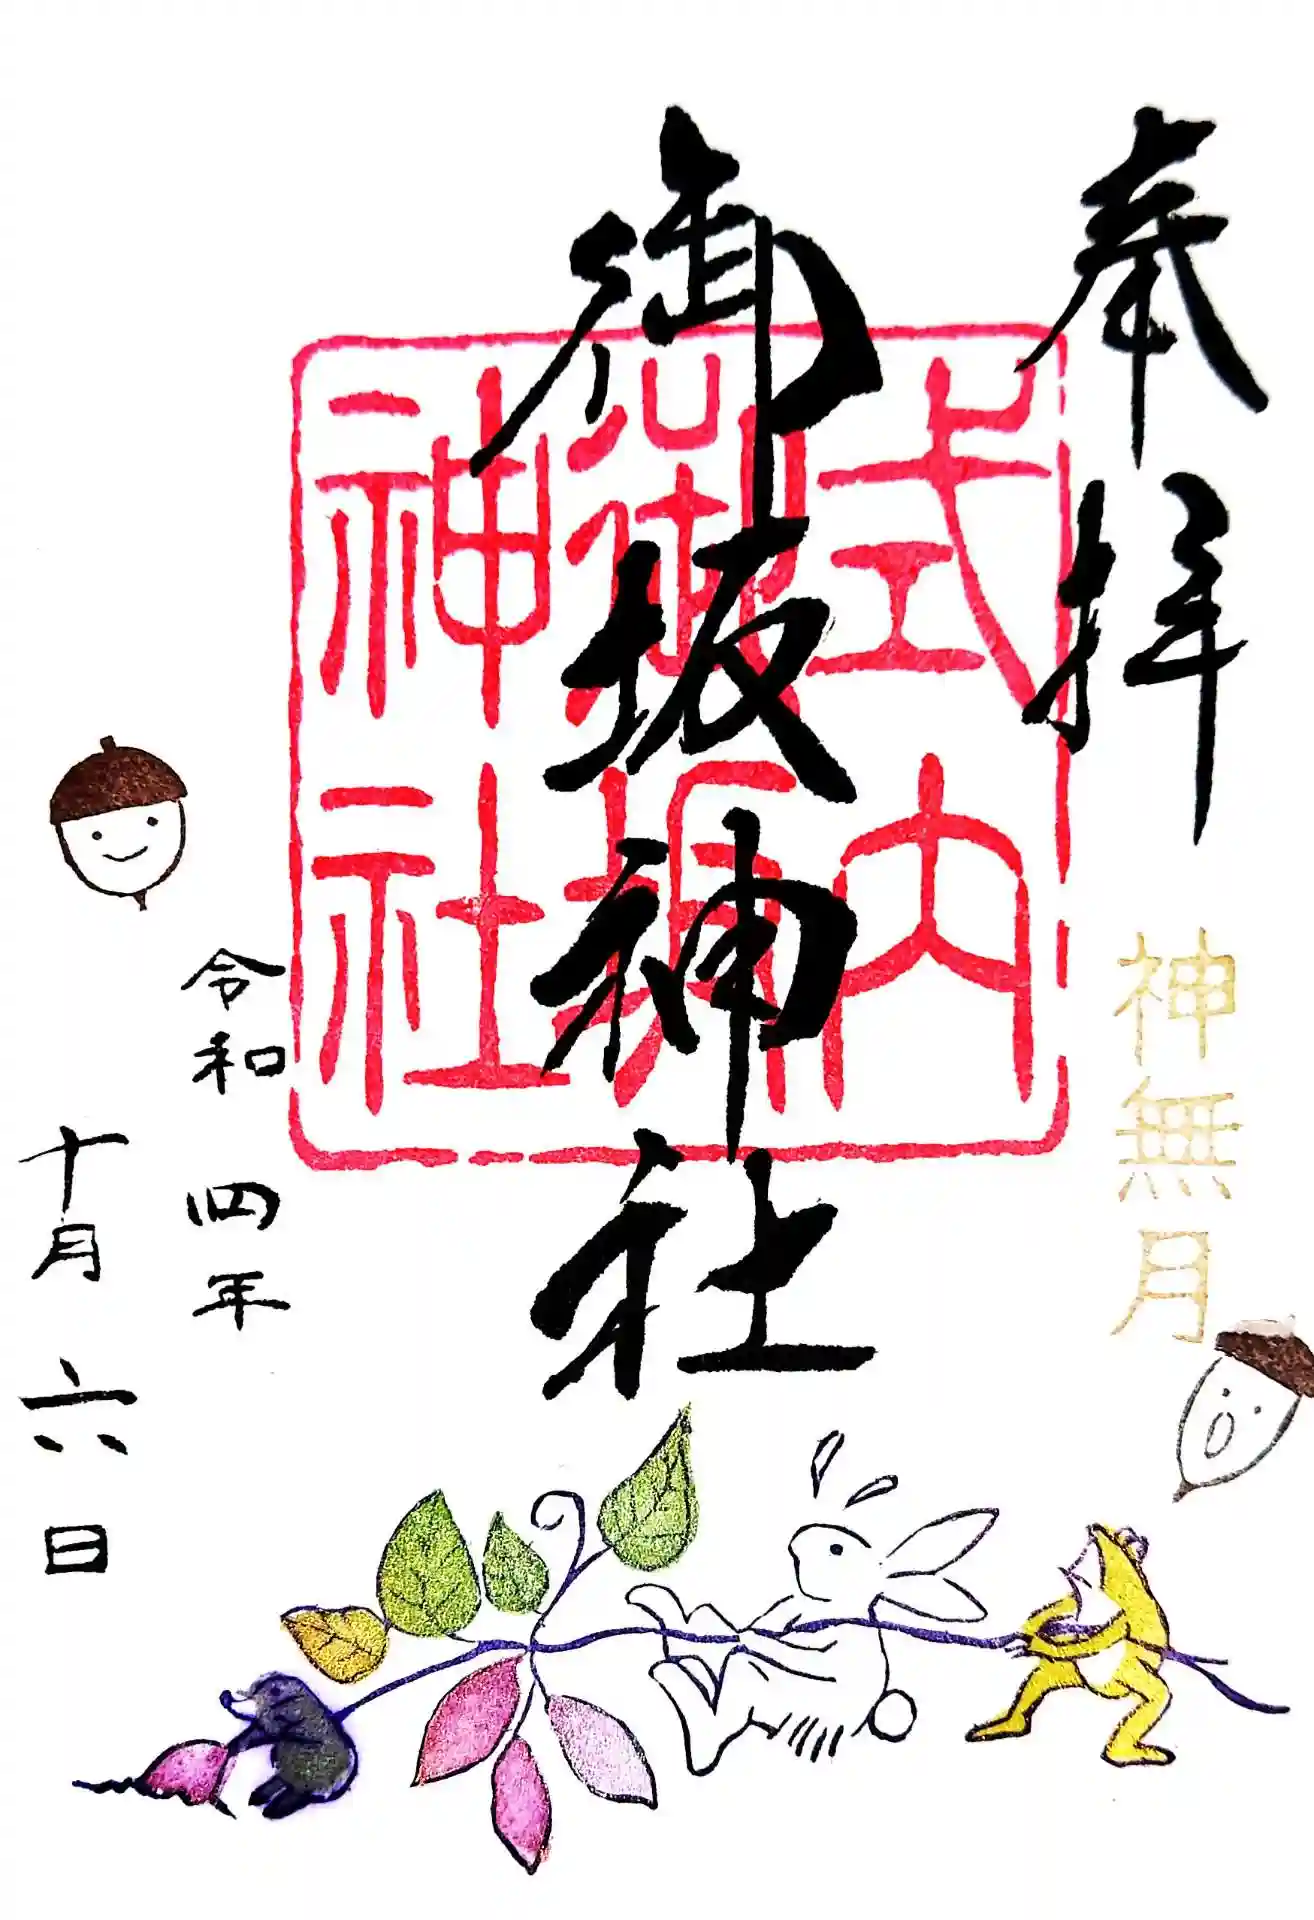 奉拝
神無月
式内
御坂
神社
御坂神社
令和四年
十月六日